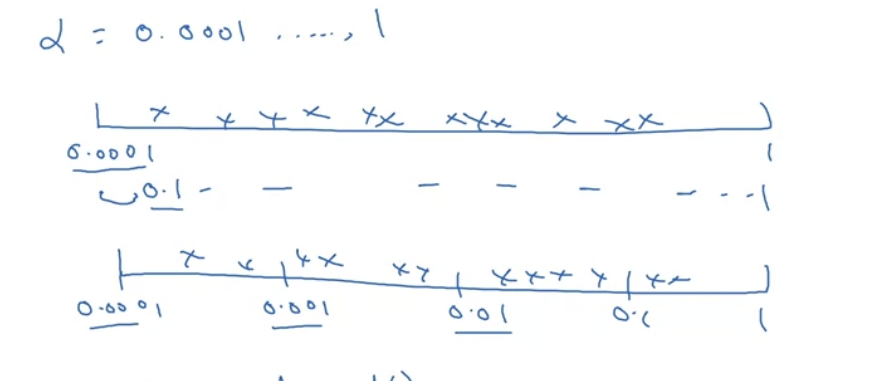 α = 0.0001 ....., 1
x x x x xx xxx x xx
0.0001 1
0.1 - - - - - - - - 1
x x xx xx xxx x xx
0.0001 0.001 0.01 0.1 1